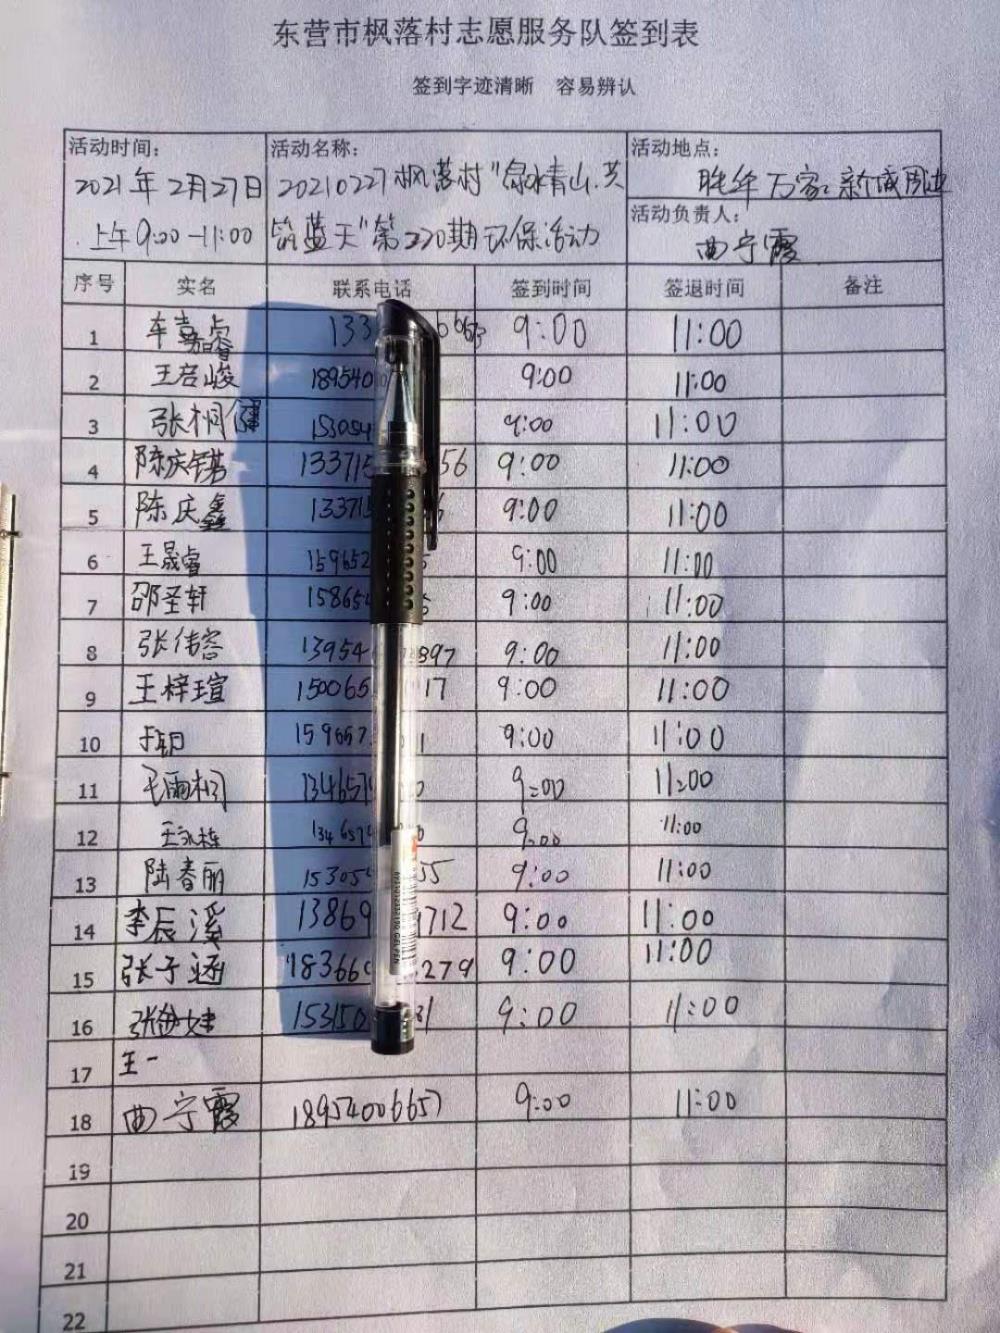 东营市枫落村志愿服务队签到表
签到字迹清晰 容易辨认
活动时间: 活动名称: 活动地点:
2021年2月27日 20210227枫落村"绿水青山.共 万家.新城周边
上午9:00-11:00 筑蓝天"第220期环保活动 活动负责人:
曲宁霞
序号 实名 联系电话 签到时间 签退时间 备注
1 车嘉睿 133 9:00 11:00
2 王启峻 189540 9:00 11:00
3 张桐健 153054 9:00 11:00
4 陈庆 133715 56 9:00 11:00
5 陈庆鑫 133715 9:00 11:00
6 王晟睿 159652 9:00 11:00
7 邵圣轩 158654 9:00 11:00
8 张伟容 13954 897 9:00 11:00
9 王梓瑄 150065 17 9:00 11:00
10 159657 1 9:00 11:00
11 毛雨桐 134657 0 9:00 11:00
12 王永栋 134657 0 9:00 11:00
13 陆春丽 153054 55 9:00 11:00
14 李辰溪 13869 1712 9:00 11:00
15 张子涵 18366 279 9:00 11:00
16 153150 31 9:00 11:00
17 王一
18 曲宁霞 18954006657 9:00 11:00
19
20
21
22